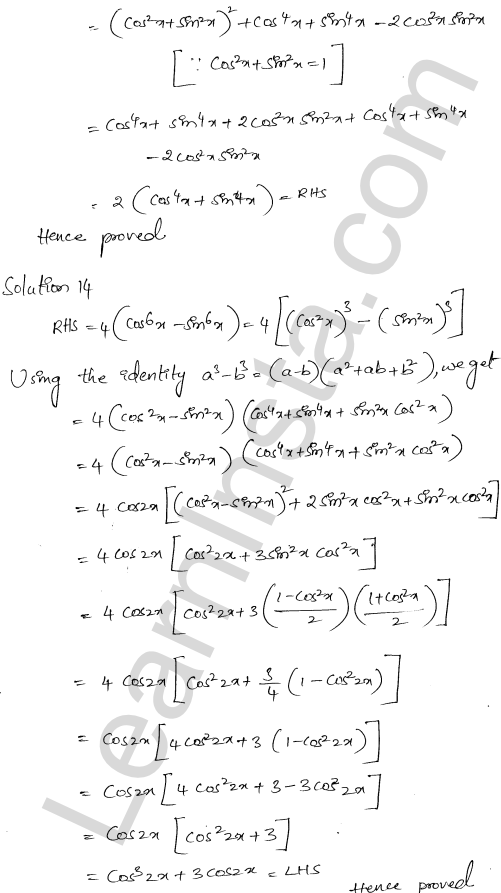 = (cos²x + sin²x)² + cos⁴x + sin⁴x − 2cos²x sin²x
[∵ cos²x + sin²x = 1]
= cos⁴x + sin⁴x + 2cos²x sin²x + cos⁴x + sin⁴x
− 2cos²x sin²x
= 2 (cos⁴x + sin⁴x) = RHS
Hence proved
Solution 14
RHS = 4(cos⁶x − sin⁶x) = 4[(cos²x)³ − (sin²x)³]
Using the identity a³−b³ = (a−b)(a²+ab+b²), we get
= 4(cos²x − sin²x) (cos⁴x + sin⁴x + sin²x cos²x)
= 4(cos²x − sin²x) (cos⁴x + sin⁴x + sin²x cos²x)
= 4 cos2x [(cos²x − sin²x)² + 2sin²x cos²x + sin²x cos²x]
= 4 cos2x [cos²2x + 3sin²x cos²x]
= 4 cos2x [cos²2x + 3 ((1−cos²x)/2) ((1+cos²x)/2)]
= 4 cos2x [cos²2x + 3/4 (1 − cos²2x)]
= cos2x [4cos²2x + 3 (1−cos²2x)]
= cos2x [4 cos²2x + 3 − 3cos²2x]
= cos2x [cos²2x + 3]
= cos³2x + 3cos2x = LHS
Hence proved
LearnInsta.com